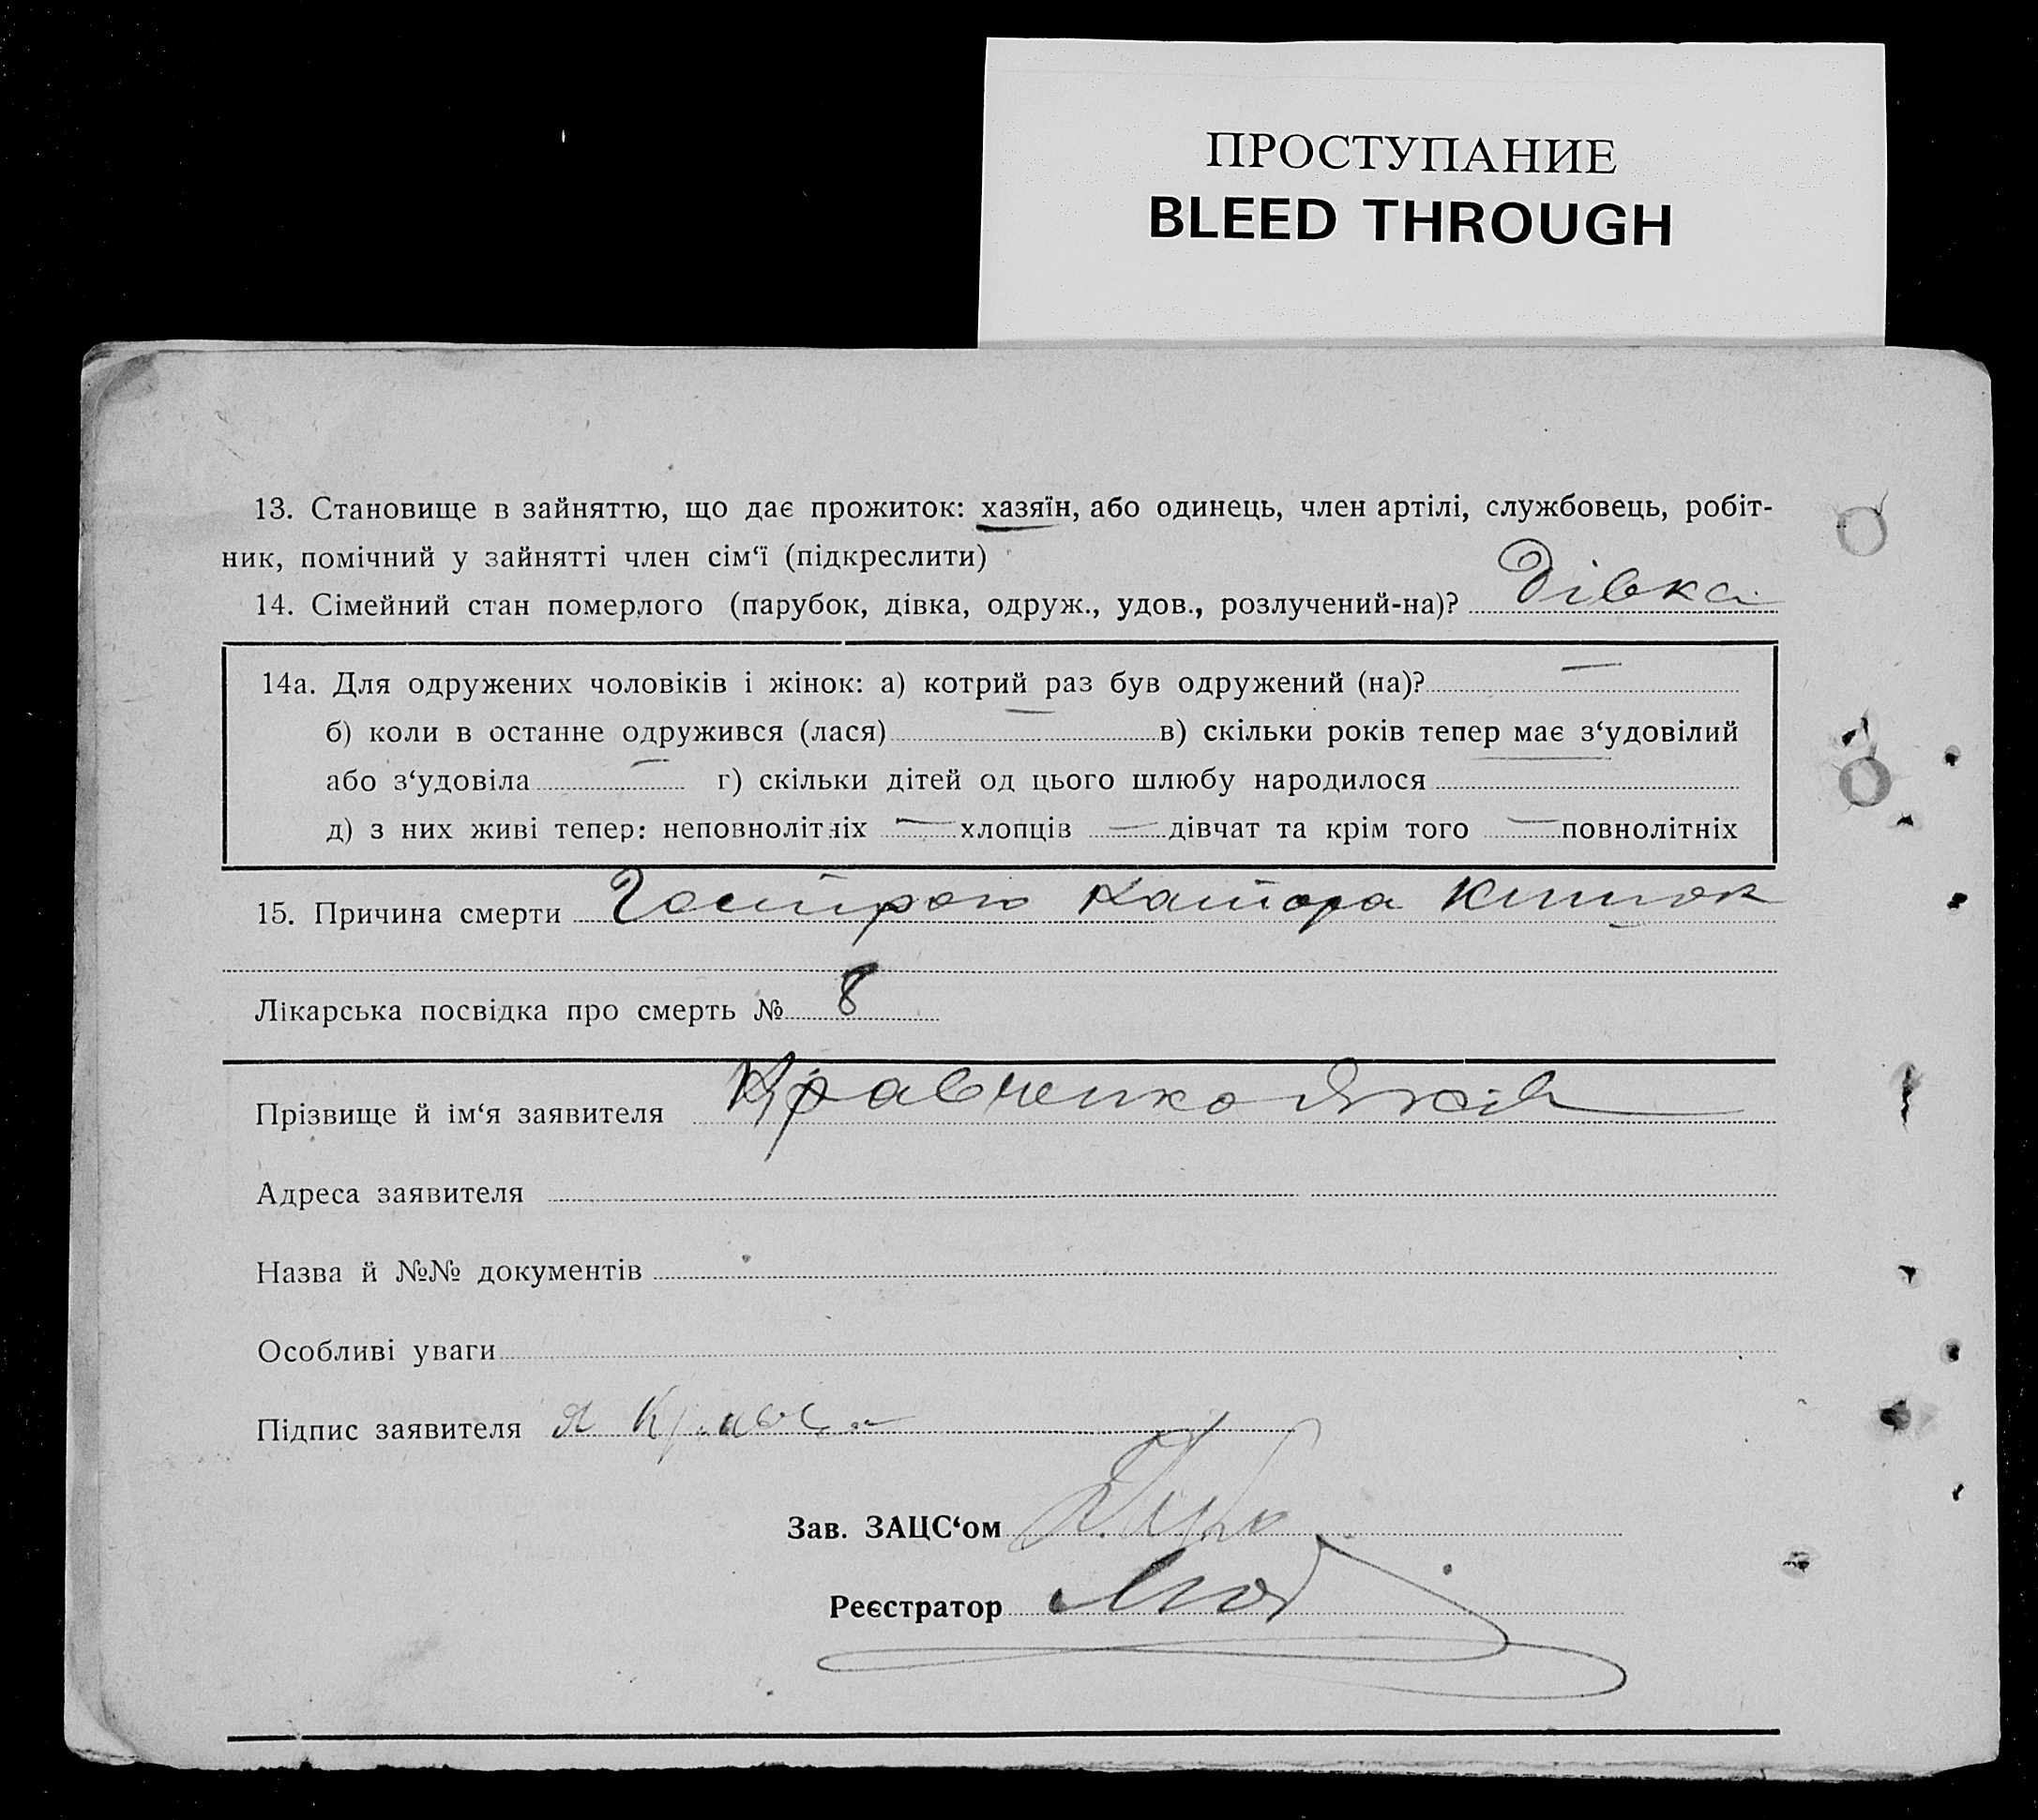 ПРОСТУПАНИЕ
BLEED THROUGH
13. Становище в зайняттю, що дає прожиток: хазяїн, або одинець, член артілі, службовець, робіт-
ник, помічний у зайнятті член сім‘ї (підкреслити)
14. Сімейний стан померлого (парубок, дівка, одруж., удов., розлучений-на)? Дівка
14а. Для одружених чоловіків і жінок: а) котрий раз був одружений (на)? —
б) коли в останне одружився (лася) — в) скільки років тепер має з‘удовілий
або з‘удовіла — г) скільки дітей од цього шлюбу народилося —
д) з них живі тепер: неповнолітніх — хлопців — дівчат та крім того — повнолітніх
15. Причина смерти Гострого Катара Кишок
Лікарська посвідка про смерть № 8
Прізвище й ім‘я заявителя Кравченко Яків
Адреса заявителя
Назва й №№ документів
Особливі уваги
Підпис заявителя Я Кравч
Зав. ЗАЦС‘ом
Реєстратор